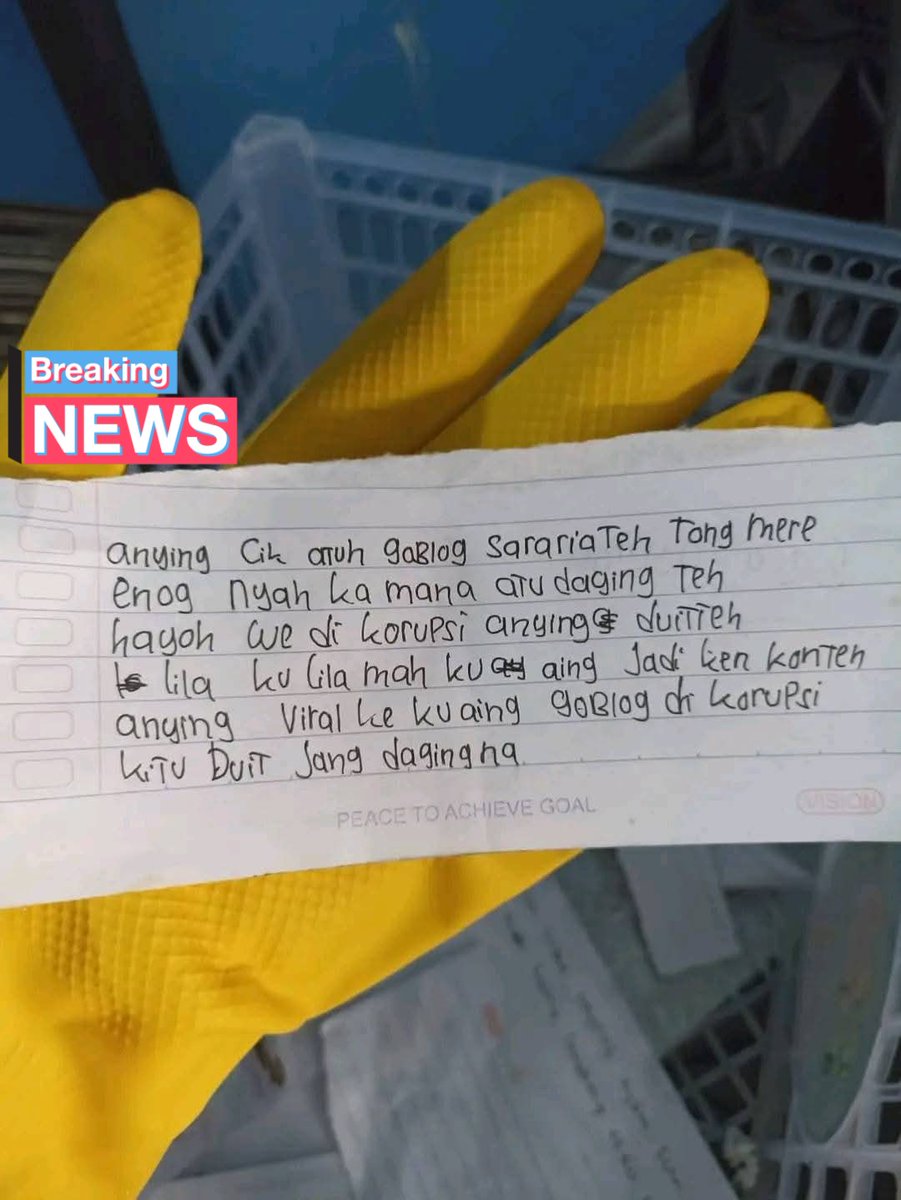 Breaking
NEWS
anying Cik atuh goBlog sarariaTeh Tong mere
enog nyah ka mana atu daging Teh
hayoh we di korupsi anying duiTTeh
lila ku lila mah ku aing Jadi ken konTen
anying Viral ke ku aing goBlog di korupsi
kiTu DuiT Jang dagingna
PEACE TO ACHIEVE GOAL
VISION